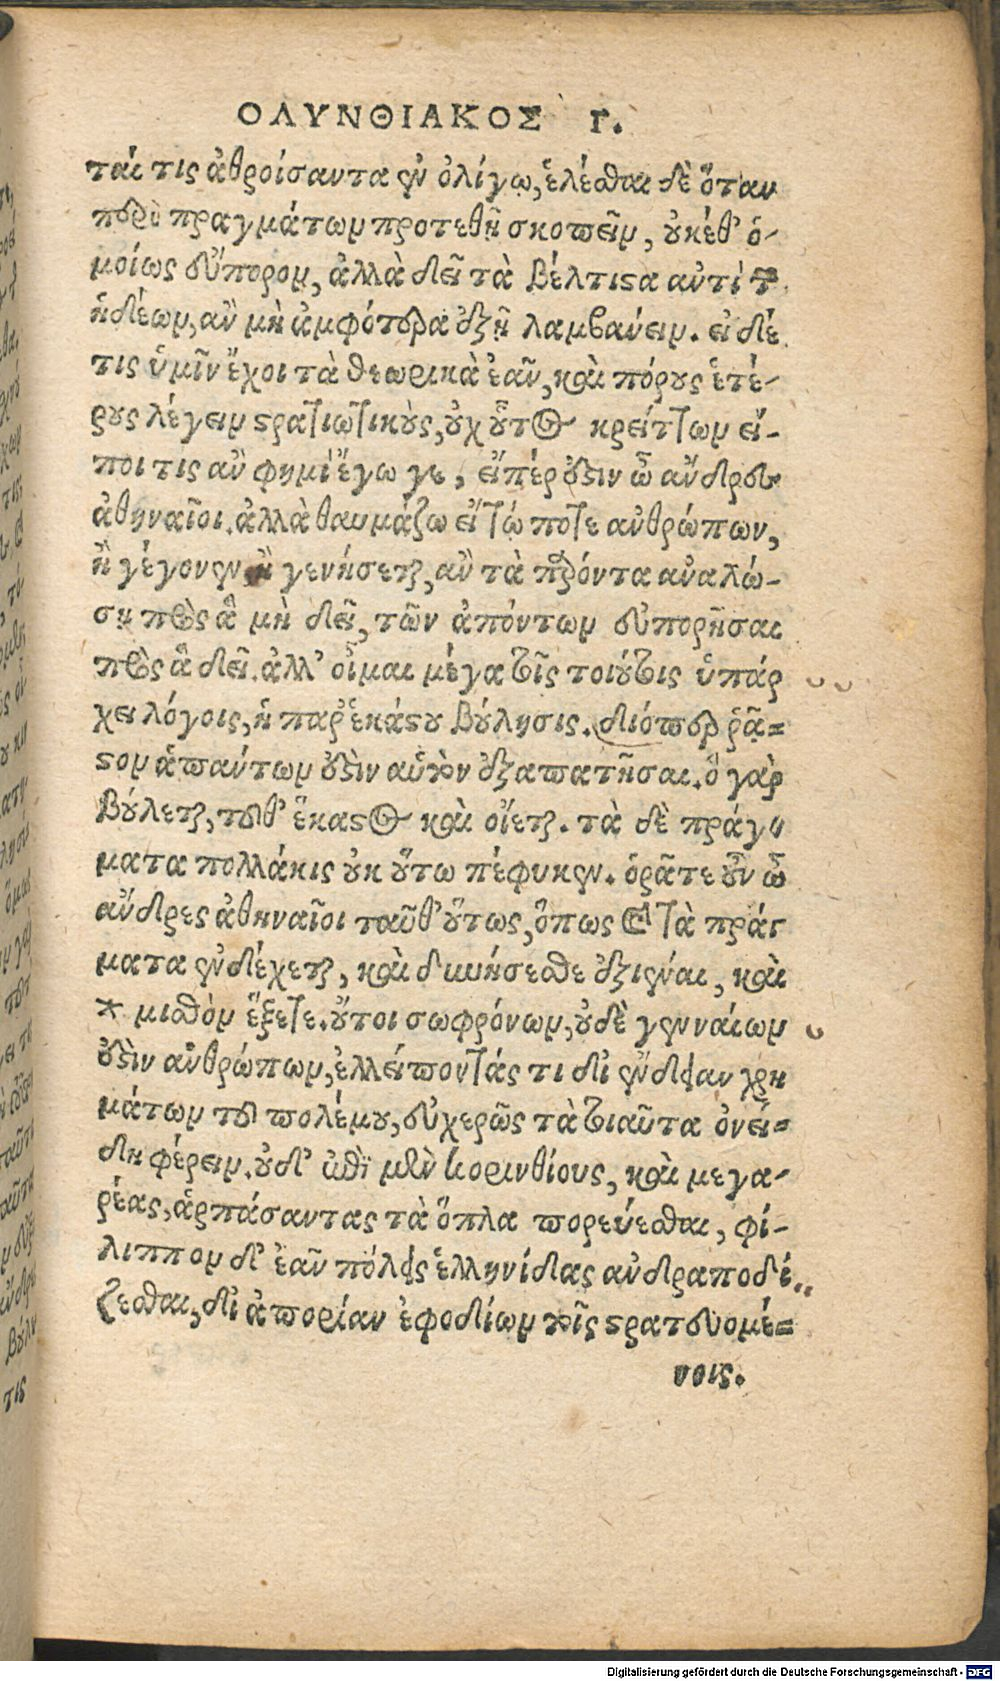 ΟΛΥΝΘΙΑΚΟΣ Γ.
ται τις ἀθροίσαντα ἐν ὀλίγῳ, ἑλέσθαι δὲ ὅταν
περὶ πραγμάτων προτεθῇ σκοπεῖν, οὐκέθ' ὁ-
μοίως εὔπορον, ἀλλὰ δεῖ τὰ βέλτιστα αὐτὶ τῶν
ἡδέων, ἂν μὴ ἀμφότερα ἐξῇ λαμβάνειν. εἰ δέ
τις ὑμῖν ἔχοι τὰ θεωρικὰ ἐᾶν, καὶ πόρους ἑτέ-
ρους λέγειν στρατιωτικοὺς, οὐχ οὗτος κρείττων εἴ-
ποι τις ἂν φημὶ ἔγωγε, εἴπέρ ἐστιν ὦ ἄνδρες
ἀθηναῖοι. ἀλλὰ θαυμάζω εἴ τῳ ποτε ἀνθρώπων,
ἢ γέγονεν ἢ γενήσεται, ἂν τὰ παρόντα ἀναλώ-
σῃ πρὸς ἃ μὴ δεῖ, τῶν ἀπόντων εὐπορῆσαι
πρὸς ἃ δεῖ. ἀλλ' οἶμαι μέγα τοῖς τοιούτοις ὑπάρ
χει λόγοις, ἡ παρ' ἑκάστου βούλησις. διόπερ ῥᾷ=
στον ἁπάντων ἐστὶν αὑτὸν ἐξαπατῆσαι. ὃ γὰρ
βούλεται, τοῦθ' ἕκαστος καὶ οἴεται. τὰ δὲ πράγ-
ματα πολλάκις οὐκ οὕτω πέφυκεν. ὁρᾶτε οὖν ὦ
ἄνδρες ἀθηναῖοι ταῦθ' οὕτως, ὅπως καὶ τὰ πράγ
ματα ἐνδέχεται, καὶ δυνήσεσθε ἐξιέναι, καὶ
* μισθὸν ἕξετε. οὔτοι σωφρόνων, οὐδὲ γενναίων
ἐστὶν ἀνθρώπων, ἐλλείποντάς τι δι' ἔνδειαν χρη
μάτων τοῦ πολέμου, εὐχερῶς τὰ τοιαῦτα ὀνεί=
δη φέρειν. οὐδ' ἐπὶ μὲν κορινθίους, καὶ μεγα-
ρέας, ἁρπάσαντας τὰ ὅπλα πορεύεσθαι, φί-
λιππον δ' ἐᾶν πόλεις ἑλληνίδας ἀνδραποδί
ζεσθαι, δι' ἀπορίαν ἐφοδίων τοῖς στρατευομέ=
νοις.
Digitalisierung gefördert durch die Deutsche Forschungsgemeinschaft - DFG